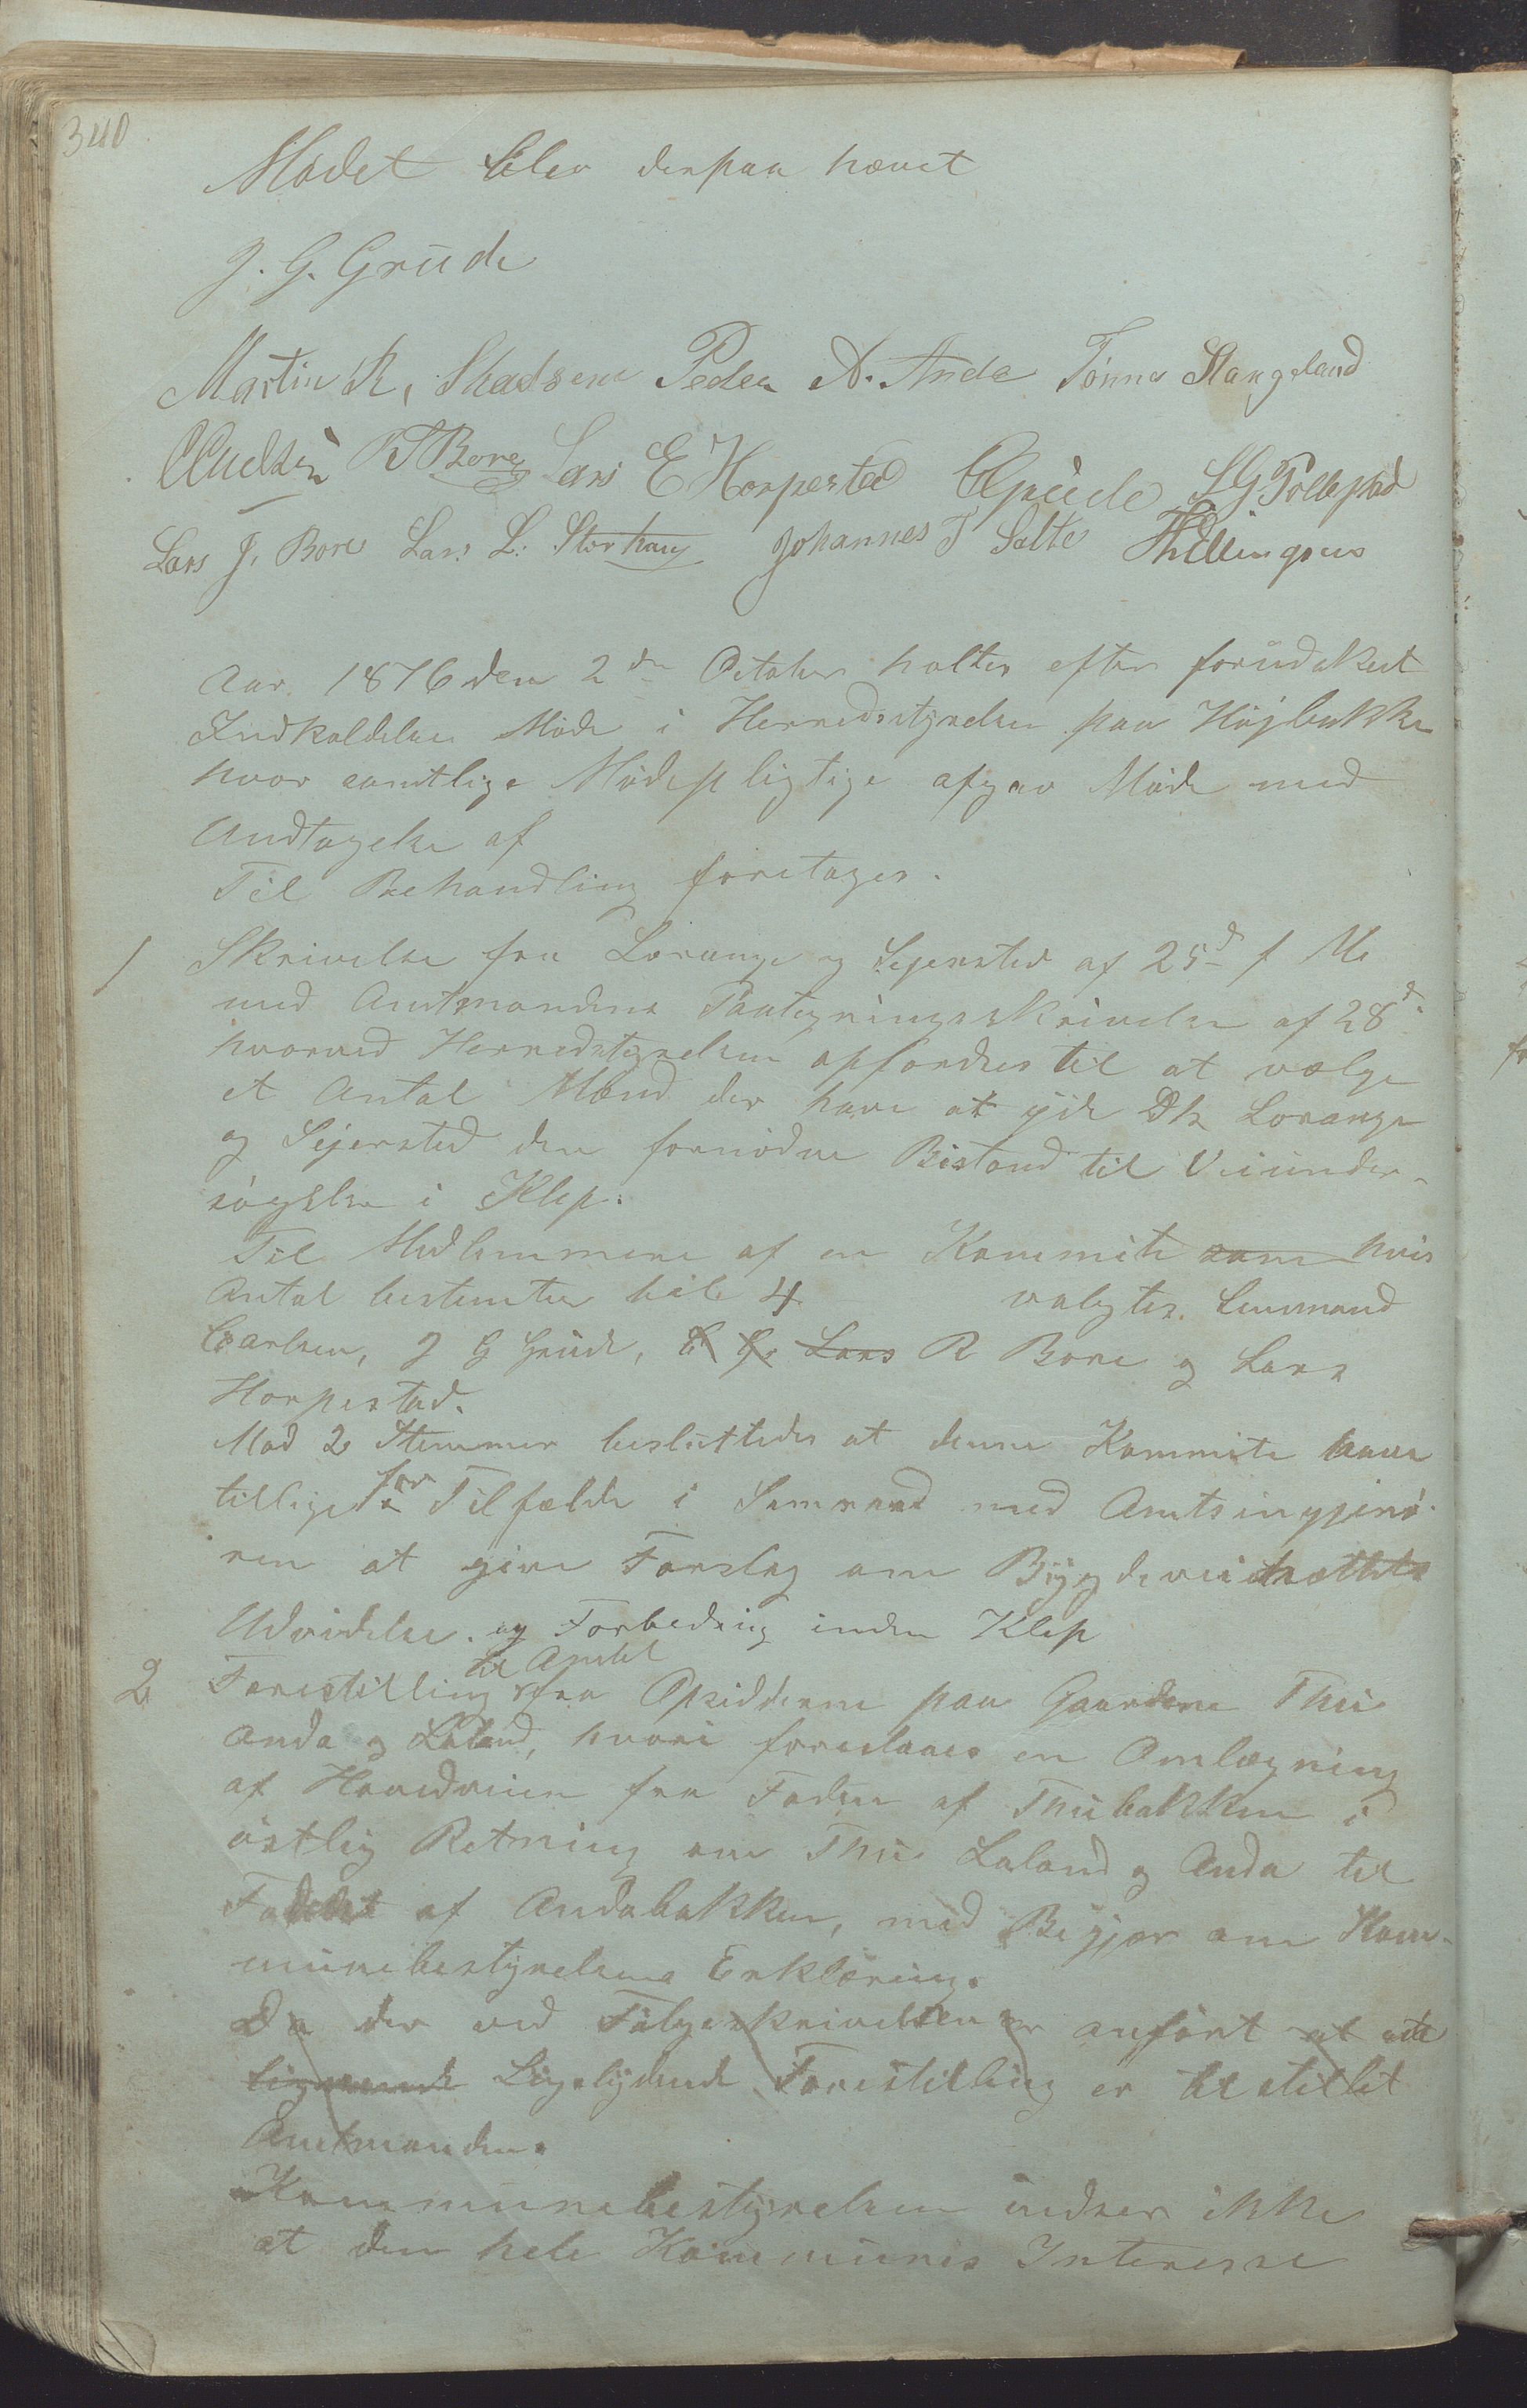 340
Mødet blev derpaa hævet
J. G. Grude
Martin R, Skadsem Peder A. Anda Tønnes Stangeland
R T Bore Lars E Horpested C Grude
Lars J. Bore Lars L: Storhaug Johannes T Salte
Aar. 1876 den 2den October holtes efter forudskeet
Indkaldelse Møde i Herredsstyrelsen paa Højbakke
hvor samtlige Mødepligtige afgav Møde med
Undtagelse af
Til Behandling foretoges.
1 Skrivelse fra Lorange og Sejersted af 25d f M
med Amtmandens Paategningsskrivelse af 28d
hvorved Herredstyrelsen opfordres til at vælge
et Antal Mænd der have at yde Dhr Lorange
og Sejersted den fornødne Bistand til Veiunder-
søgelse i Klep.
Til Medlemmene af en Kommite som hvis
Antal bestemtes blive 4 valgtes. Lensmand
Carlsen, J G Grude, C G. Lars R Bore og Lars
Horpestad.
Mod 2 Stemmer besluttedes at denne Kommite have
tillige for Tilfælde i Samraad med Amtsingjeniø-
ren at give Forslag om Bygdeveienettets
Udvidelse. og Forbedring inden Klep
til Amtet
2 Forestilling fra Opsidderne paa Gaardene Thu
Anda og Laland, hvori foreslaaes en Omlægning
af Hovedveien fra Foden af Thubakken i
østlig Retning om Thu Laland og Anda til
Foden af Andabakken, med Begjær om Kom-
munebestyrelsens Erklæring.
Da der ved Følgeskrivelsen er anført at
lignende Ligelydende Forestilling er tilstillet
Amtmanden.
Kommunebestyrelsen indser ikke
at den hele Kommunes Interesse